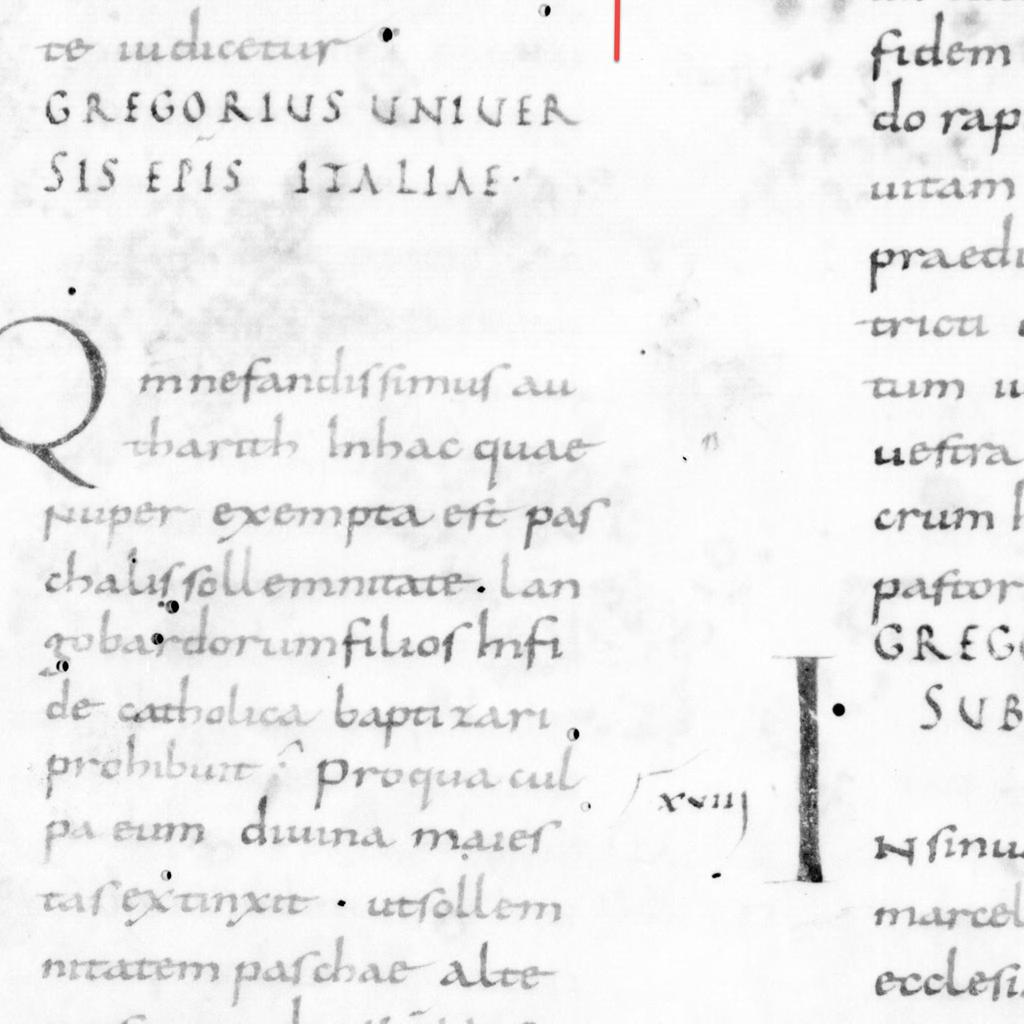 te iudicetur
GREGORIUS UNIUER
SIS EPIS ITALIAE·
Qm nefandissimus au
tharith Inhac quae
Nuper exempta est pas
chalis sollemnitate· lan
gobardorum filios Infi
de catholica baptizari
prohibuit Pro qua cul
pa eum diuina maies
tas extinxit · ut sollem
nitatem paschae alte
xviiij
fidem
do rap
uitam
praedi
tricti
tum
uestra
crum
pastor
GREGO
SUB
IN sinu
marcel
ecclesi